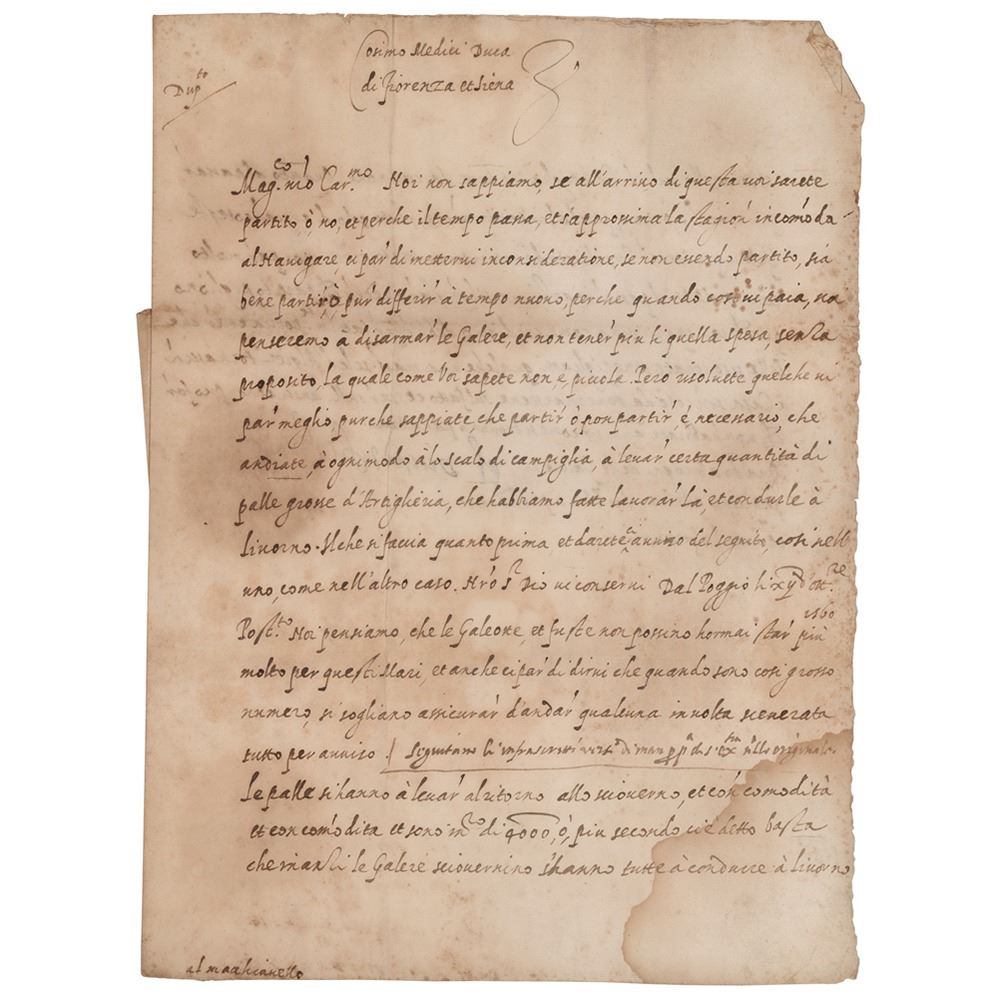 Dup.to
Cosimo Medici Duca
di Fiorenza et Siena
Mag.co n'ro Car.mo Noi non sappiamo, se all'arrivo di questa voi sarete
partito, ò no, et perche il tempo passa, et s'approssima la stagion' incom'oda
al Navigare, ci par' di mettervi inconsideratione, se non essendo partito, sia
bene partir', ò pur' differir' à tempo nuovo, perche quando cosi vi paia, no
penseremo à disarmar' le Galere, et non tener' piu li quella spesa, senza
proposito, la quale come Voi sapete non è picola. Però risoluete quelche vi
par' meglio purche sappiate, che partir', ò non partir' è necessario, che
andiate, à ognimodo à lo scalo di campiglia, à levar' certa quantità di
palle grosse d'Artiglieria, che habbiamo fatte lavorar' là, et condurle à
livorno. Ilche si faccia quanto prima, et darete ci avviso del seguito, cosi nell
uno, come nell'altro caso. N'ro S.r Dio vi conservi Dal Poggio li xv d'ott.re
1560
Post.to Noi pensiamo, che le Galeotte, et fuste non possino hormai star' più
molto per questi Mari, et anche ci par' di dirvi che quando sono cosi grosso
numero, si sogliano assicurar' d'andar' qualcuna in volta scevrata
tutto per avviso / Seguitano li infrascritti versi di man pp.a di s. ex. nello originale.
le palle si hanno à levar' al ritorno allo scioverno, et con comodità
et con com'odita et sono in di 4000, ò, piu secondo ci è detto basta
che inanzi le Galere sciovernino s'hanno tutte à condurre à livorno
al machiavello